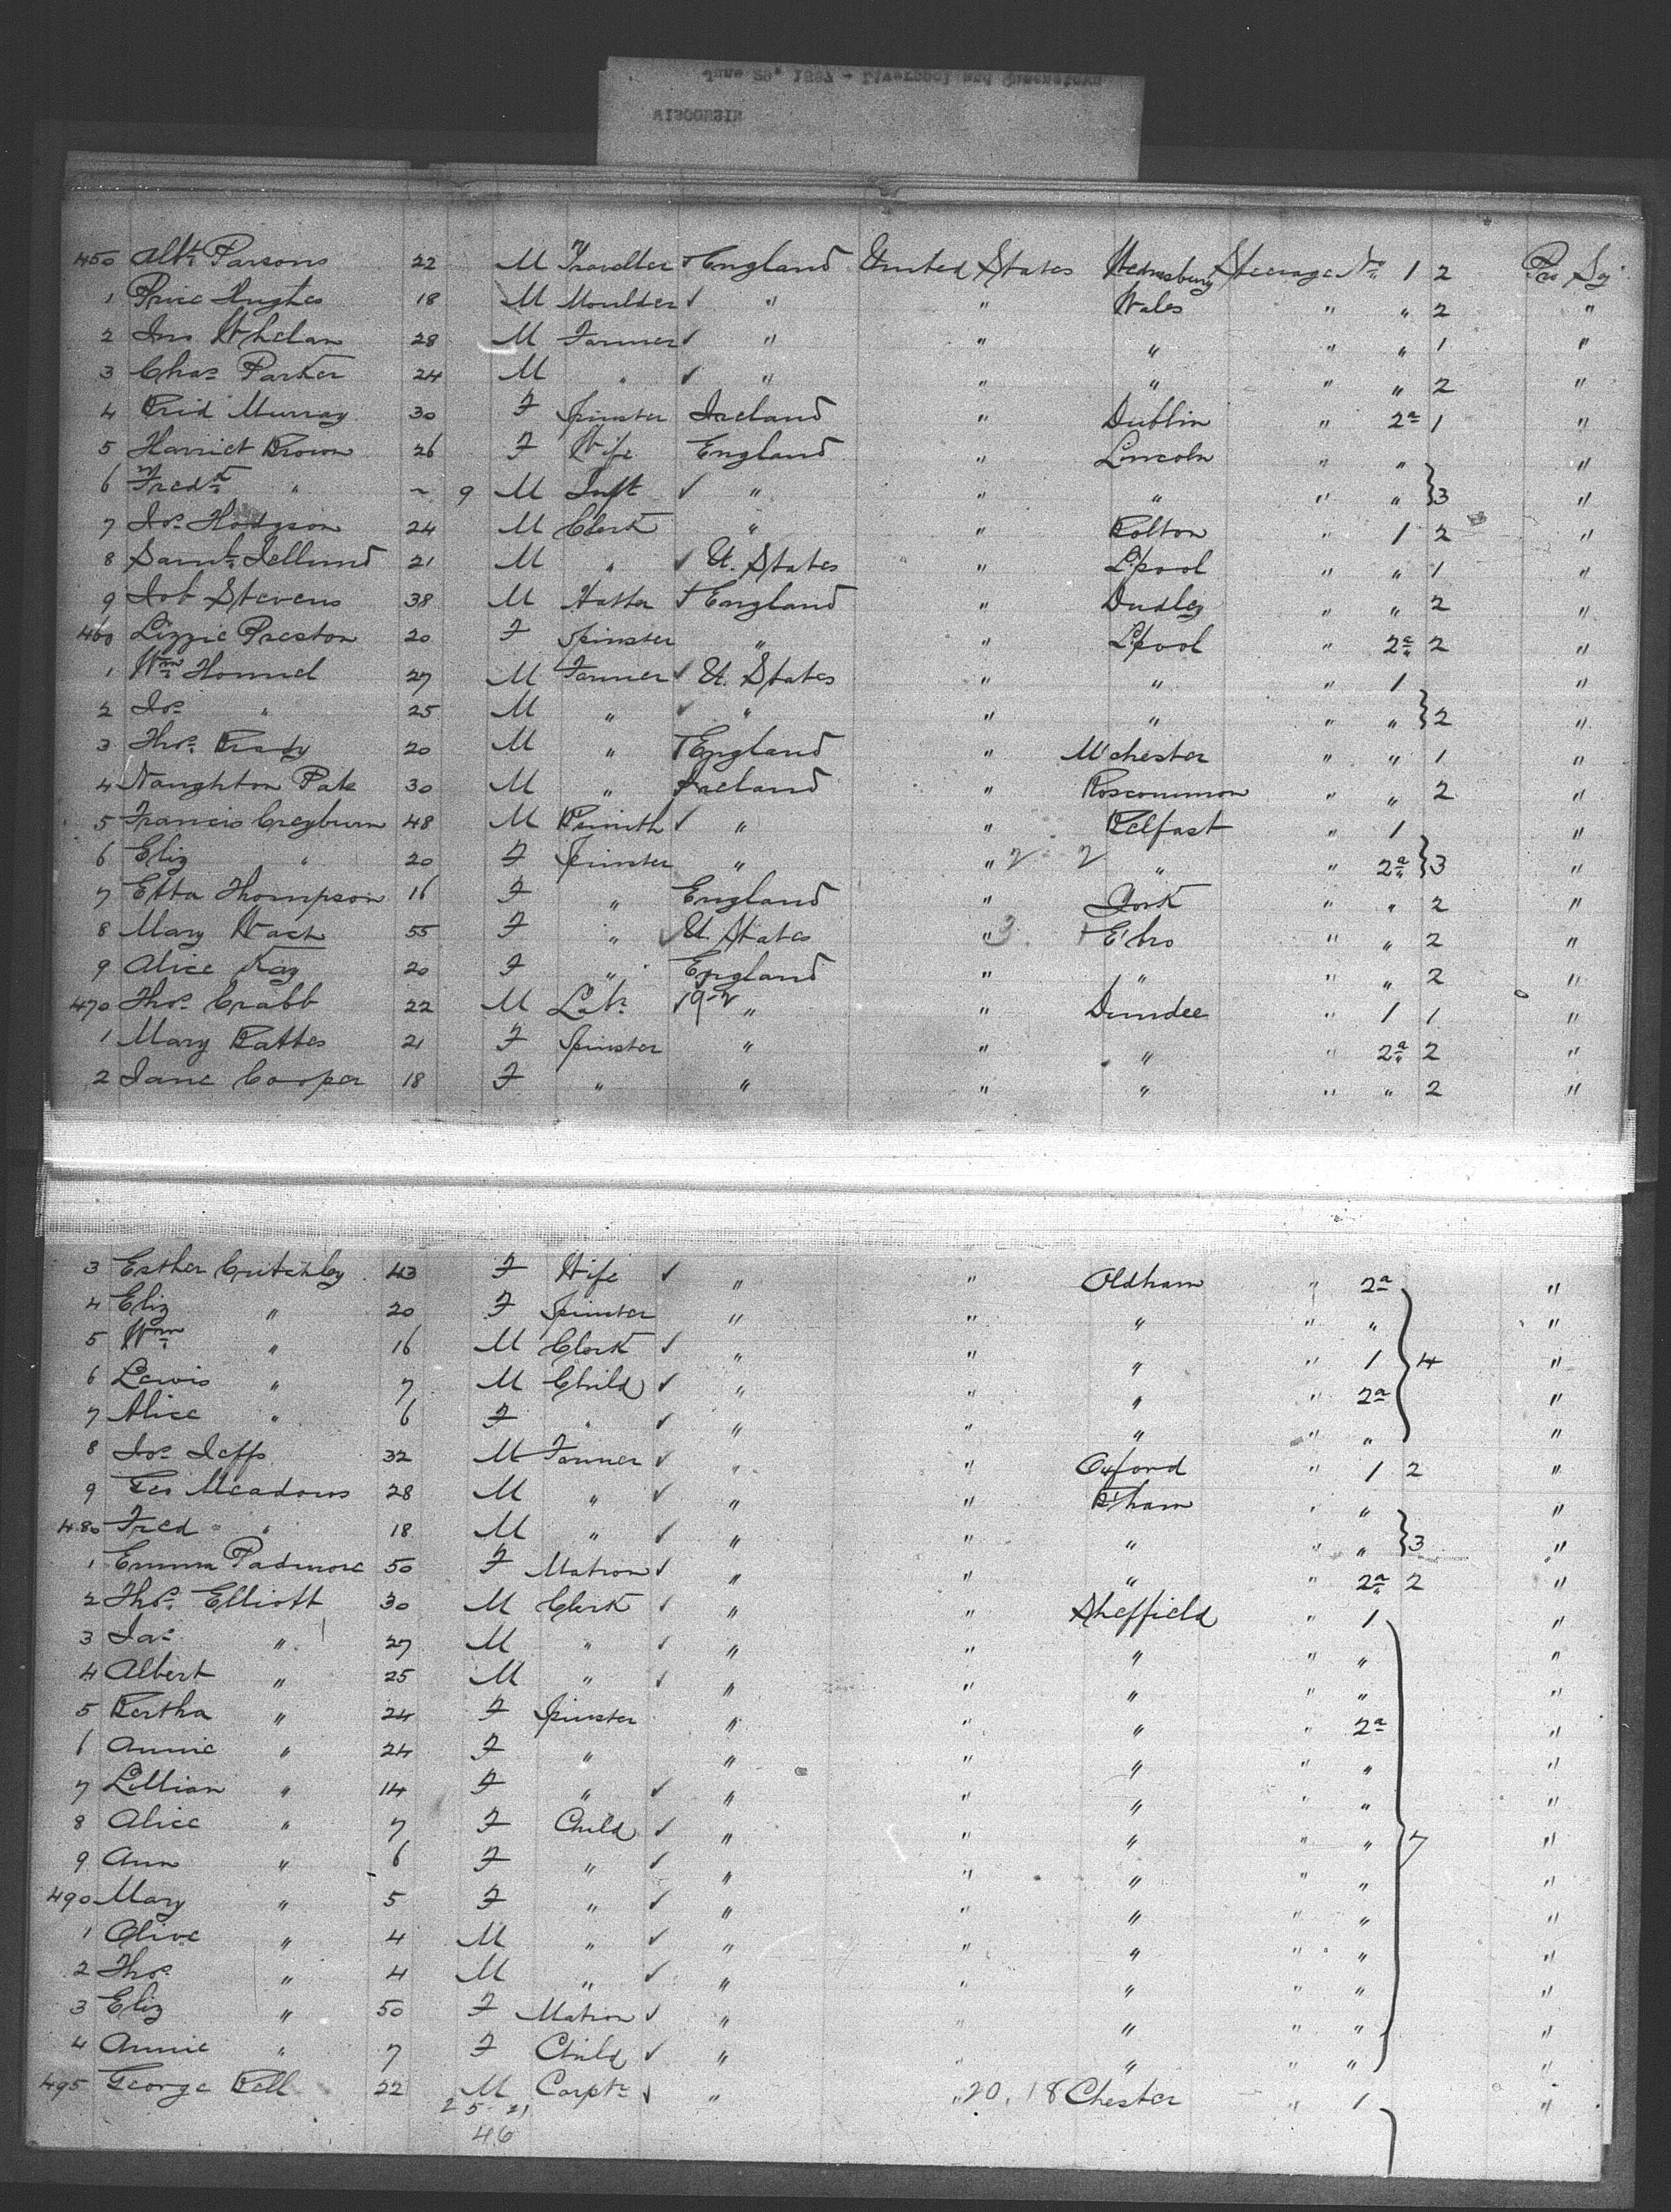 June 29' 1887 - Liverpool and Queenstown
WISCONSIN
450 Albt Parsons 22 M Traveller England United States Wednesbury Steerage No 1 2 Pro Sy
1 Price Hughes 18 M Moulder ✓ " " Wales " " 2 "
2 Jno Whelan 28 M Farmer ✓ " " " " " 1 "
3 Chas Parker 24 M " ✓ " " " " " 2 "
4 Brid Murray 30 F Spinster Ireland " Dublin " 2a 1 "
5 Harriet Brown 26 F Wife England " Lincoln " " "
6 Fredk " ~ 9 M Inft ✓ " " " " " }3 "
7 Jos Hodgson 24 M Clerk " " Bolton " 1 2 "
8 Saml 21 M " ✓ U. States " L'pool " " 1 "
9 Job Stevens 38 M Hatter England " Dudley " " 2 "
460 Lizzie Preston 20 F Spinster " " L'pool " 2a 2 "
1 Wm 27 M Farmer ✓ U. States " " " 1 "
2 Jos " 25 M " ✓ " " " " " }2 "
3 Thos Brady 20 M " England " M'chester " " 1 "
4 Naughton Pate 30 M " Ireland " Roscommon " " 2 "
5 Francis 48 M ✓ " " Belfast " 1 "
6 Eliz " 20 F Spinster " " 2 2 " " 2a }3 "
7 Etta Thompson 16 F " England " York " " 2 "
8 Mary 55 F " ✓ U. States " 3 " " 2 "
9 Alice Kay 20 F " England " " " " 2 "
470 Thos Crabb 22 M Labr 19-2 " " Dundee " 1 1 "
1 Mary Battes 21 F Spinster " " " " 2a 2 "
2 Jane Cooper 18 F " " " " " " 2 "
3 Esther Critchley 43 F Wife ✓ " " Oldham " 2a "
4 Eliz " 20 F Spinster " " " " " "
5 Wm " 16 M Clerk ✓ " " " " 1 }4 "
6 Lewis " 7 M Child ✓ " " " " 2a "
7 Alice " 6 F " ✓ " " " " " "
8 Jos Jeffs 32 M Farmer ✓ " " Oxford " 1 2 "
9 Geo Meadows 28 M " ✓ " " B'ham " " "
480 Fred " 18 M " ✓ " " " " " }3 "
1 Emma Padmore 50 F Matron ✓ " " " " 2a 2 "
2 Thos Elliott 30 M Clerk ✓ " " Sheffield " 1 "
3 Jas " 27 M " ✓ " " " " " "
4 Albert " 25 M " ✓ " " " " " "
5 Bertha " 24 F Spinster " " " " 2a "
6 Annie " 24 F " " " " " " "
7 Lillian " 14 F " ✓ " " " " " "
8 Alice " 7 F Child ✓ " " " " " }7 "
9 Ann " 6 F " ✓ " " " " " "
490 Mary " 5 F " ✓ " " " " " "
1 Olive " 4 M " ✓ " " " " " "
2 Thos " 4 M " ✓ " " " " " "
3 Eliz " 50 F Matron ✓ " " " " " "
4 Annie " 7 F Child ✓ " " " " " "
495 George Bell 22 M Carptr ✓ " " 20. 18 Chester " 1 "
25 21
46